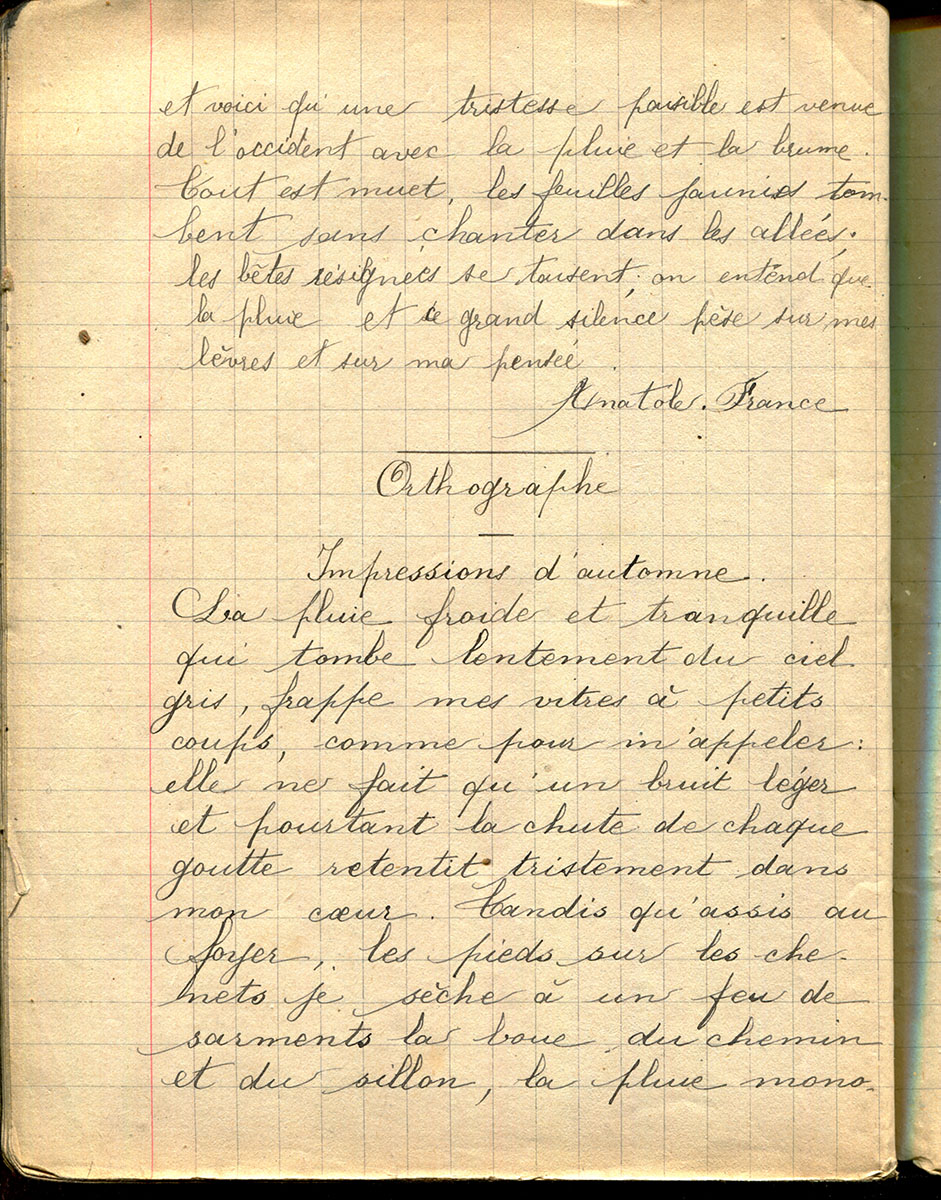 et voici qu'une tristesse paisible est venue
de l'occident avec la pluie et la brume.
Tout est muet, les feuilles jaunies tom-
bent sans chanter dans les allées;
les bêtes résignées se taisent; on entend que
la pluie et ce grand silence pèse sur mes
lèvres et sur ma pensée.
Anatole. France
Orthographe
Impressions d'automne.
La pluie froide et tranquille
qui tombe lentement du ciel
gris, frappe mes vitres à petits
coups, comme pour m'appeler:
elle ne fait qu'un bruit léger
et pourtant la chute de chaque
goutte retentit tristement dans
mon cœur. Tandis qu'assis au
foyer, les pieds sur les che-
nets je sèche à un feu de
sarments la boue du chemin
et du sillon, la pluie mono-